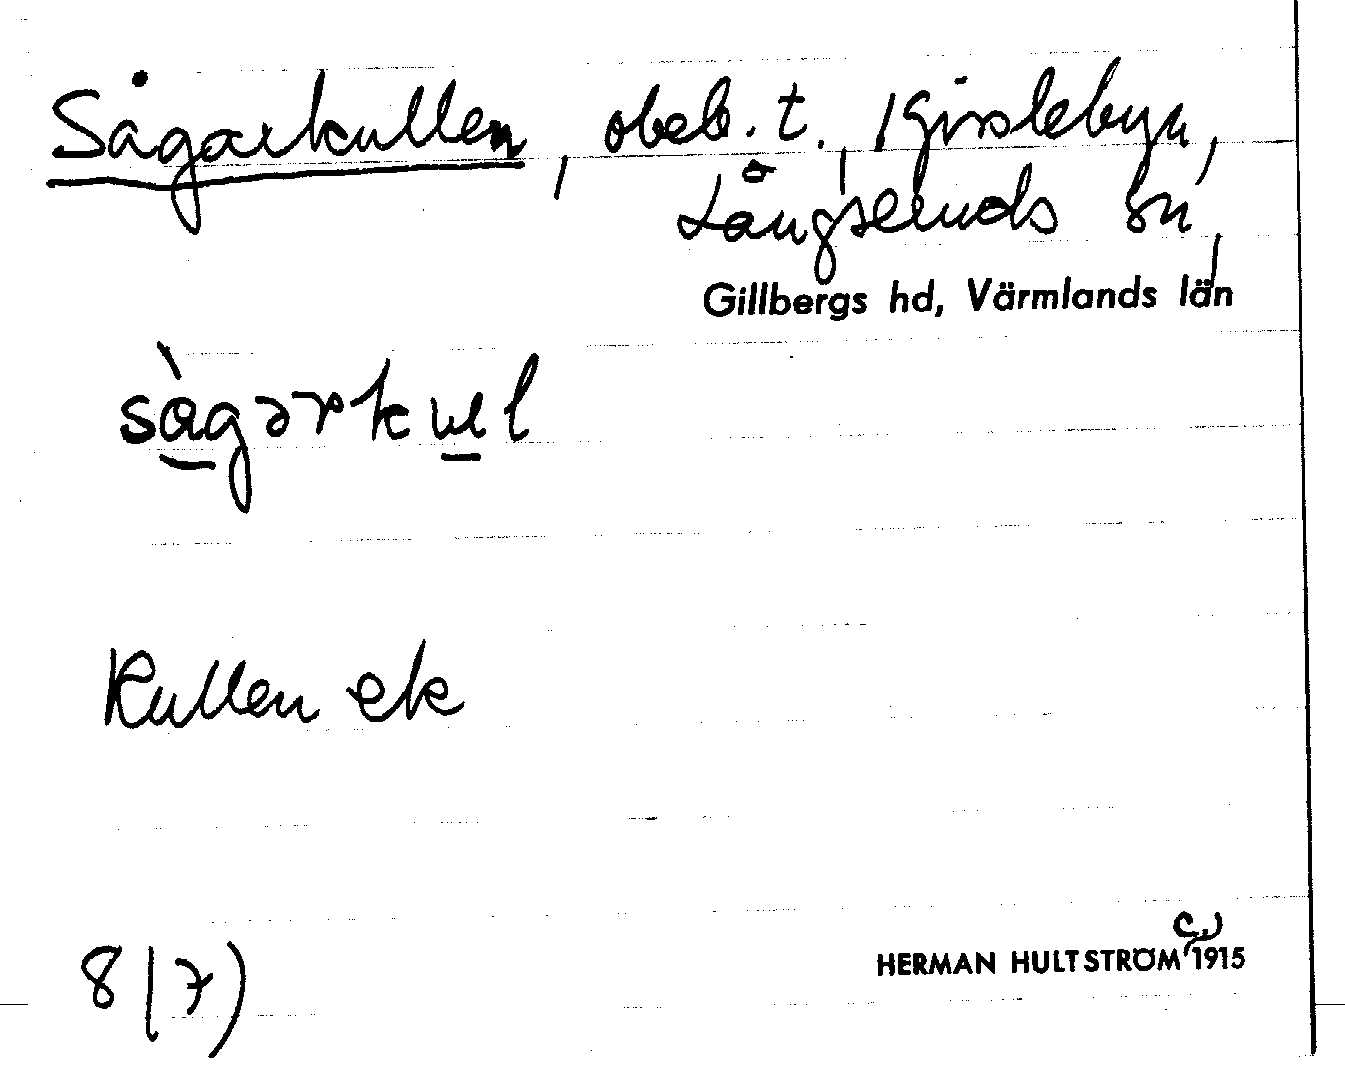 Sågarkullen, obeb. t., Gislebyn,
Långseruds sn,
Gillbergs hd, Värmlands län
sågərkul
Kullen ek
c.
HERMAN HULTSTRÖM 1915
8(7)